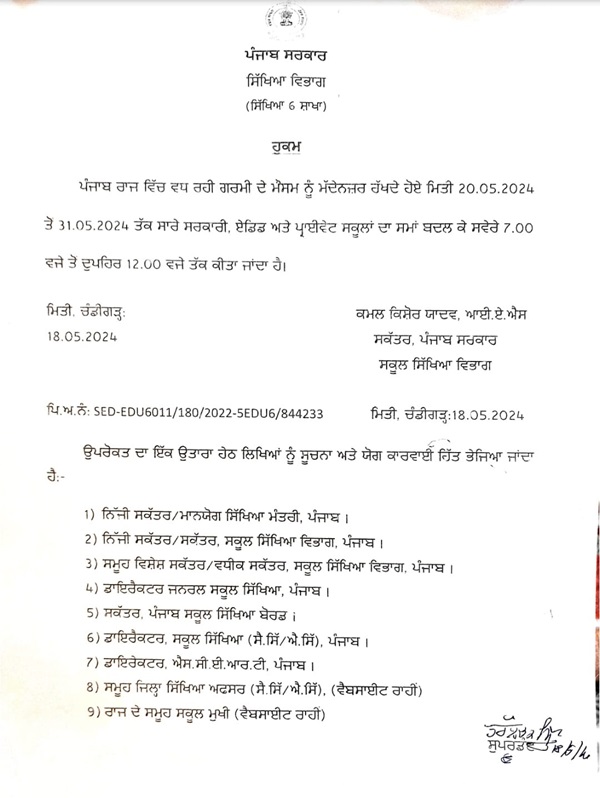 ਪੰਜਾਬ ਸਰਕਾਰ
ਸਿੱਖਿਆ ਵਿਭਾਗ
(ਸਿੱਖਿਆ 6 ਸ਼ਾਖਾ)
ਹੁਕਮ
ਪੰਜਾਬ ਰਾਜ ਵਿੱਚ ਵਧ ਰਹੀ ਗਰਮੀ ਦੇ ਮੌਸਮ ਨੂੰ ਮੱਦੇਨਜ਼ਰ ਰੱਖਦੇ ਹੋਏ ਮਿਤੀ 20.05.2024
ਤੋਂ 31.05.2024 ਤੱਕ ਸਾਰੇ ਸਰਕਾਰੀ, ਏਡਿਡ ਅਤੇ ਪ੍ਰਾਈਵੇਟ ਸਕੂਲਾਂ ਦਾ ਸਮਾਂ ਬਦਲ ਕੇ ਸਵੇਰੇ 7.00
ਵਜੇ ਤੋਂ ਦੁਪਹਿਰ 12.00 ਵਜੇ ਤੱਕ ਕੀਤਾ ਜਾਂਦਾ ਹੈ।
ਮਿਤੀ, ਚੰਡੀਗੜ੍ਹ: ਕਮਲ ਕਿਸ਼ੋਰ ਯਾਦਵ, ਆਈ.ਏ.ਐਸ
18.05.2024 ਸਕੱਤਰ, ਪੰਜਾਬ ਸਰਕਾਰ
ਸਕੂਲ ਸਿੱਖਿਆ ਵਿਭਾਗ
ਪਿ.ਅ.ਨੰ: SED-EDU6011/180/2022-5EDU6/844233 ਮਿਤੀ, ਚੰਡੀਗੜ੍ਹ:18.05.2024
ਉਪਰੋਕਤ ਦਾ ਇੱਕ ਉਤਾਰਾ ਹੇਠ ਲਿਖਿਆਂ ਨੂੰ ਸੂਚਨਾ ਅਤੇ ਯੋਗ ਕਾਰਵਾਈ ਹਿੱਤ ਭੇਜਿਆ ਜਾਂਦਾ
ਹੈ:-
1) ਨਿੱਜੀ ਸਕੱਤਰ/ਮਾਨਯੋਗ ਸਿੱਖਿਆ ਮੰਤਰੀ, ਪੰਜਾਬ ।
2) ਨਿੱਜੀ ਸਕੱਤਰ/ਸਕੱਤਰ, ਸਕੂਲ ਸਿੱਖਿਆ ਵਿਭਾਗ, ਪੰਜਾਬ ।
3) ਸਮੂਹ ਵਿਸ਼ੇਸ਼ ਸਕੱਤਰ/ਵਧੀਕ ਸਕੱਤਰ, ਸਕੂਲ ਸਿੱਖਿਆ ਵਿਭਾਗ, ਪੰਜਾਬ ।
4) ਡਾਇਰੈਕਟਰ ਜਨਰਲ ਸਕੂਲ ਸਿੱਖਿਆ, ਪੰਜਾਬ ।
5) ਸਕੱਤਰ, ਪੰਜਾਬ ਸਕੂਲ ਸਿੱਖਿਆ ਬੋਰਡ ।
6) ਡਾਇਰੈਕਟਰ, ਸਕੂਲ ਸਿੱਖਿਆ (ਸੈ.ਸਿੱ/ਐ.ਸਿੱ), ਪੰਜਾਬ ।
7) ਡਾਇਰੇਕਟਰ, ਐਸ.ਸੀ.ਈ.ਆਰ.ਟੀ, ਪੰਜਾਬ ।
8) ਸਮੂਹ ਜਿਲ੍ਹਾ ਸਿੱਖਿਆ ਅਫਸਰ (ਸੈ.ਸਿੱ/ਐ.ਸਿੱ), (ਵੈਬਸਾਈਟ ਰਾਹੀਂ)
9) ਰਾਜ ਦੇ ਸਮੂਹ ਸਕੂਲ ਮੁਖੀ (ਵੈਬਸਾਈਟ ਰਾਹੀਂ)